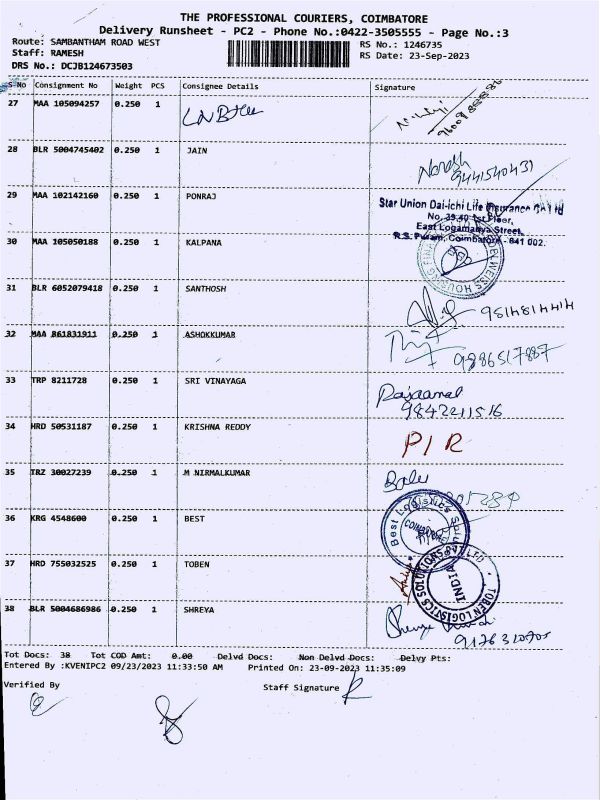 THE PROFESSIONAL COURIERS, COIMBATORE
Delivery Runsheet - PC2 - Phone No.:0422-3505555 - Page No.:3
Route: SAMBANTHAM ROAD WEST RS No.: 1246735
Staff: RAMESH RS Date: 23-Sep-2023
DRS No.: DCJB124673503
S No Consignment No Weight PCS Consignee Details Signature
27 MAA 105094257 0.250 1
28 BLR 5004745402 0.250 1 JAIN
Naresh
9441540431
29 MAA 102142160 0.250 1 PONRAJ
Star Union Dai-ichi Life Insurance Co Ltd
No. 39,40 1st Floor,
East Logamanya Street,
R.S. Puram, Coimbatore - 641 002.
30 MAA 105050188 0.250 1 KALPANA
31 BLR 6052079418 0.250 1 SANTHOSH
9514814414
32 MAA 861831911 0.250 1 ASHOKKUMAR
9886517887
33 TRP 8211728 0.250 1 SRI VINAYAGA
9842211516
34 HRD 50531187 0.250 1 KRISHNA REDDY
P/R
35 TRZ 30027239 0.250 1 M NIRMALKUMAR
Balu
36 KRG 4548600 0.250 1 BEST
Best Logistics
COIMBATORE
37 HRD 755032525 0.250 1 TOBEN
TOBEN LOGISTICS SOLUTIONS PVT LTD
INDIA
38 BLR 5004686986 0.250 1 SHREYA
Tot Docs: 38 Tot COD Amt: 0.00 Delvd Docs: Non Delvd Docs: Delvy Pts:
Entered By :KVENIPC2 09/23/2023 11:33:50 AM Printed On: 23-09-2023 11:35:09
Verified By Staff Signature